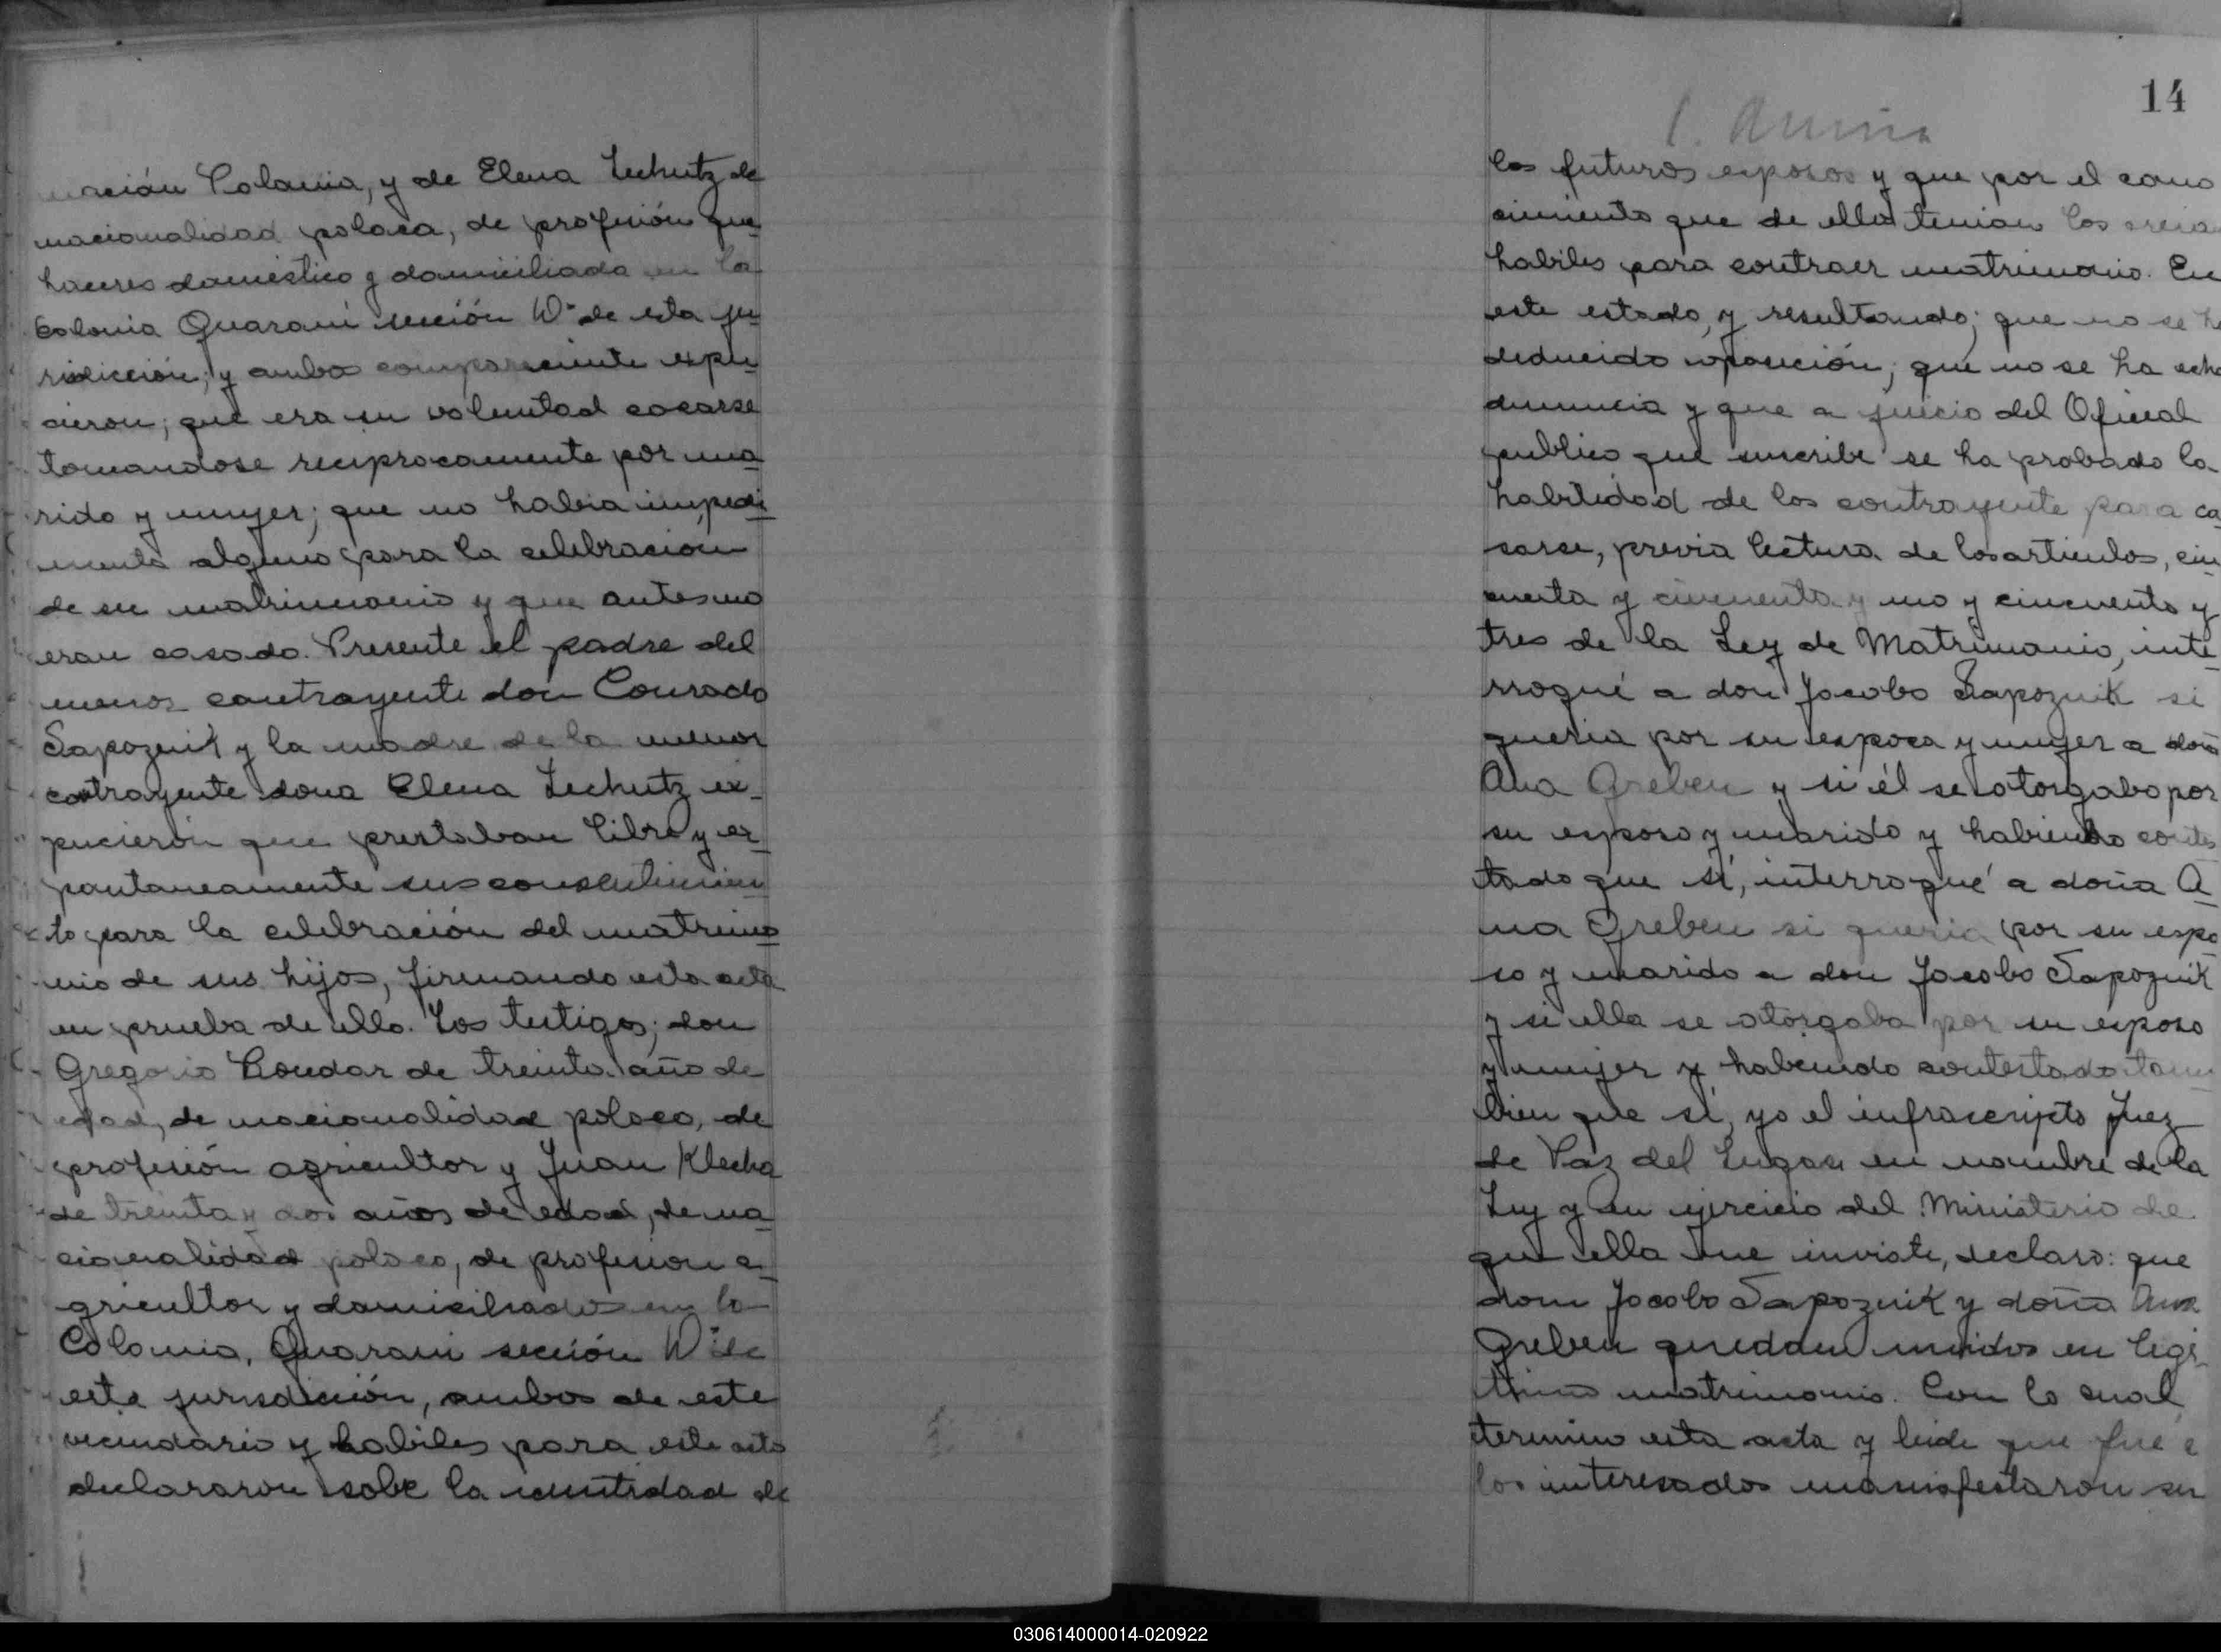 nación Polania, y de Elena Lechutz de
nacionalidad polaca, de profesión que
haceres doméstico y domiciliada en la
Colonia Guaraní sección W. de esta ju
risdicción; y ambos compareciente expu
cieron; que era su voluntad cacarse
tomandose reciprocamente por ma
rido y mujer; que no habia impedi
mento alguno para la celebración
de su matrimonio y que antes no
eran casado. Presente el padre del
menor contrayente don Conrado
Sapoznik y la madre de la menor
contrayente dona Elena Lechutz ex-
pucieron que prestaban libre y es
pontaneamente sus consentimien
to para la celebración del matrimo
nio de sus hijos, firmando esta acta
en prueba de ello. Los testigos; don
Gregorio Bondar de treinta año de
edad, de nacionalidad polaco, de
profesión agricultor y Juan Klecha
de treinta y dos años de edad, de na
cionalidad polaco, de profesion a
gricultor y domiciliados en la
Colonia, Guarani sección W. de
esta jurisdicción, ambos de este
vecindario y habiles para este acto
declararon sobe la identidad de
14
los futuros esposos y que por el cono
cimiento que de ellos tenian los creia
habiles para contraer matrimonio. En
este estado, y resultando; que no se ha
deducido oposición; que no se ha echo
denuncia y que a juicio del Oficial
publico que suscribe se ha probado la
habilidad de los contrayente para ca
sarse, previa lectura de los artículos, cin
cuenta y cincuenta y uno y cincuenta y
tres de la Ley de Matrimonio, inte
rroqué a don Jacobo Sapoznik si
queria por su espoca y mujer a doña
Ana Greben y si él se otorgaba por
su esposo y marido y habiendo contes
tado que sí, interroqué a doña A
na Greben si queria por su espo
so y marido a don Jacobo Sapoznik
y si ella se otorgaba por su esposo
y mujer y habiendo contestado tam
bien que sí, yo el infrascripto Juez
de Paz del Lugar en nombre de la
Ley y en ejercicio del Ministerio de
que ella me inviste, declaro: que
dom Jacobo Sapoznik y doña Ana
Greben quedan unidos en legi
timo matrimonio. Con lo cual
termino esta acta y leida que fue a
los interesados manisfestaron su
030614000014-020922